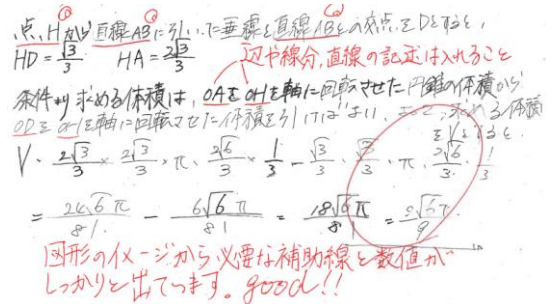 点Hから直線ABに引いた垂線と直線ABとの交点をDとすると,
HD = √3/3 HA = 2√3/3
辺や線分,直線の記述は入れること
条件より求める体積は, OAをOHを軸に回転させた円錐の体積から
ODをOHを軸に回転させた体積を引けばよい, よって, 求める体積
をVとすると,
V = 2√3/3 × 2√3/3 × π × 2√6/3 × 1/3 - √3/3 × √3/3 × π × 2√6/3 × 1/3
= 24√6π/81 - 6√6π/81 = 18√6π/81 = 2√6π/9
図形のイメージから必要な補助線と数値が
しっかりと出てます。good!!